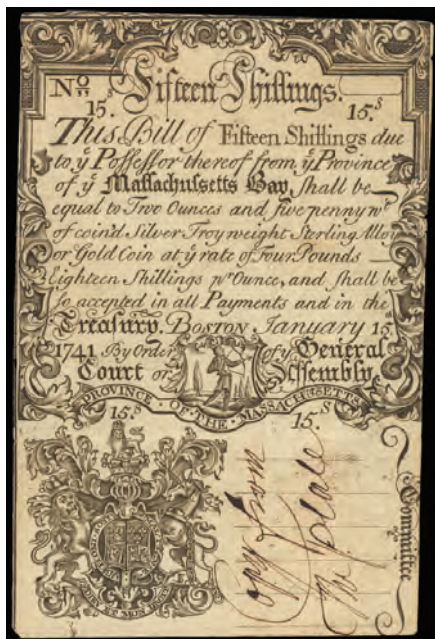 No
Fifteen Shillings.
15.s 15.s
This Bill of Fifteen Shillings due
to ye Possessor thereof from ye Province
of ye Massachusetts Bay, shall be
equal to Two Ounces and five penny wt
of coin'd Silver Troy weight Sterling Alloy
or Gold Coin at ye rate of Four Pounds
Eighteen Shillings pr Ounce, and shall be
so accepted in all Payments and in the
Treasury. BOSTON January 15
1741 By Order of ye General
Court or Assembly.
PROVINCE · OF · THE · MASSACHUSETTS
15.s 15.s
Committee